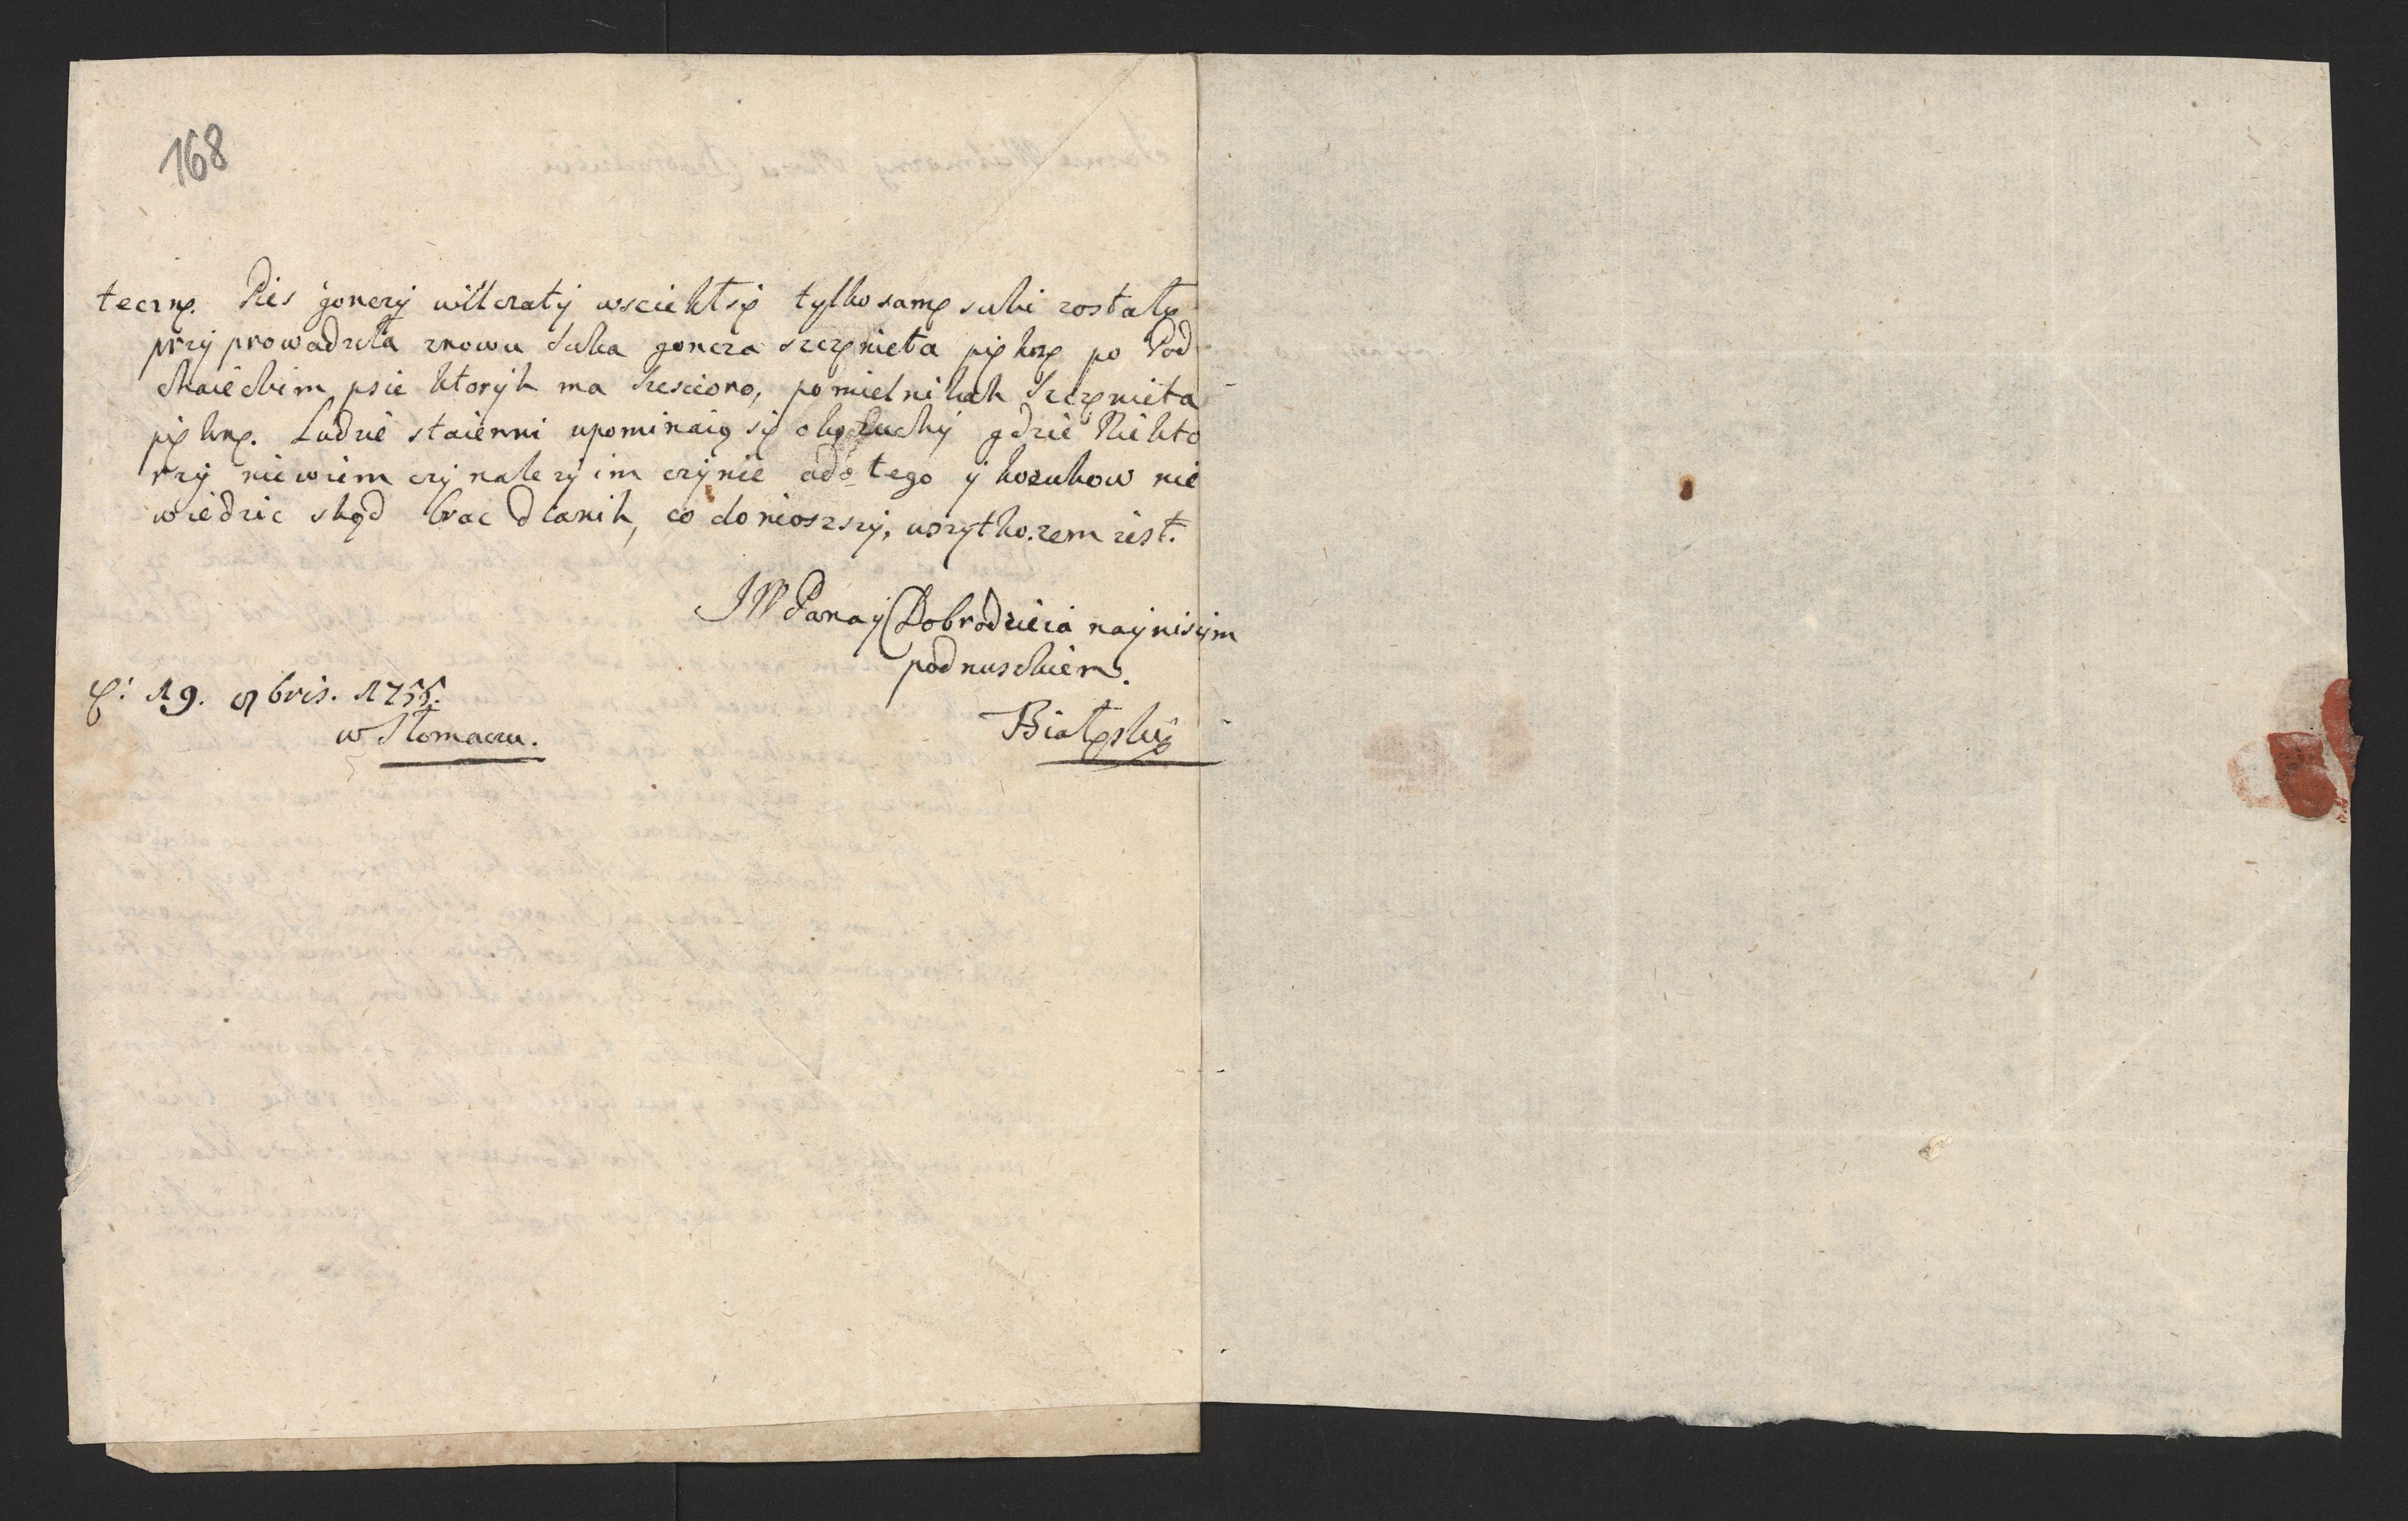 168
teczne. Pies gonczy wilczaty wsciekłsię tylko same suki zostałę
przyprowadzeła znowu suka goncza szczenieta piękne po Pod
chaieckim psie ktoryh ma szescioro, po mielnikah szczenieta
piękne. Ludzie staienni upominaią się okożuchy gdzie Niekto
rzy niewiem czy nalezy im czynie ado tego y kozuhow nie
wiedzic skąd brac dlanih, co doniozszy, wszytko.zem iest.
JW Pana y Dobrodzieia naynisym
podnuschiem.
D: 19. 9bris. 1755.
w Tłomaczu.
Białęskỹ